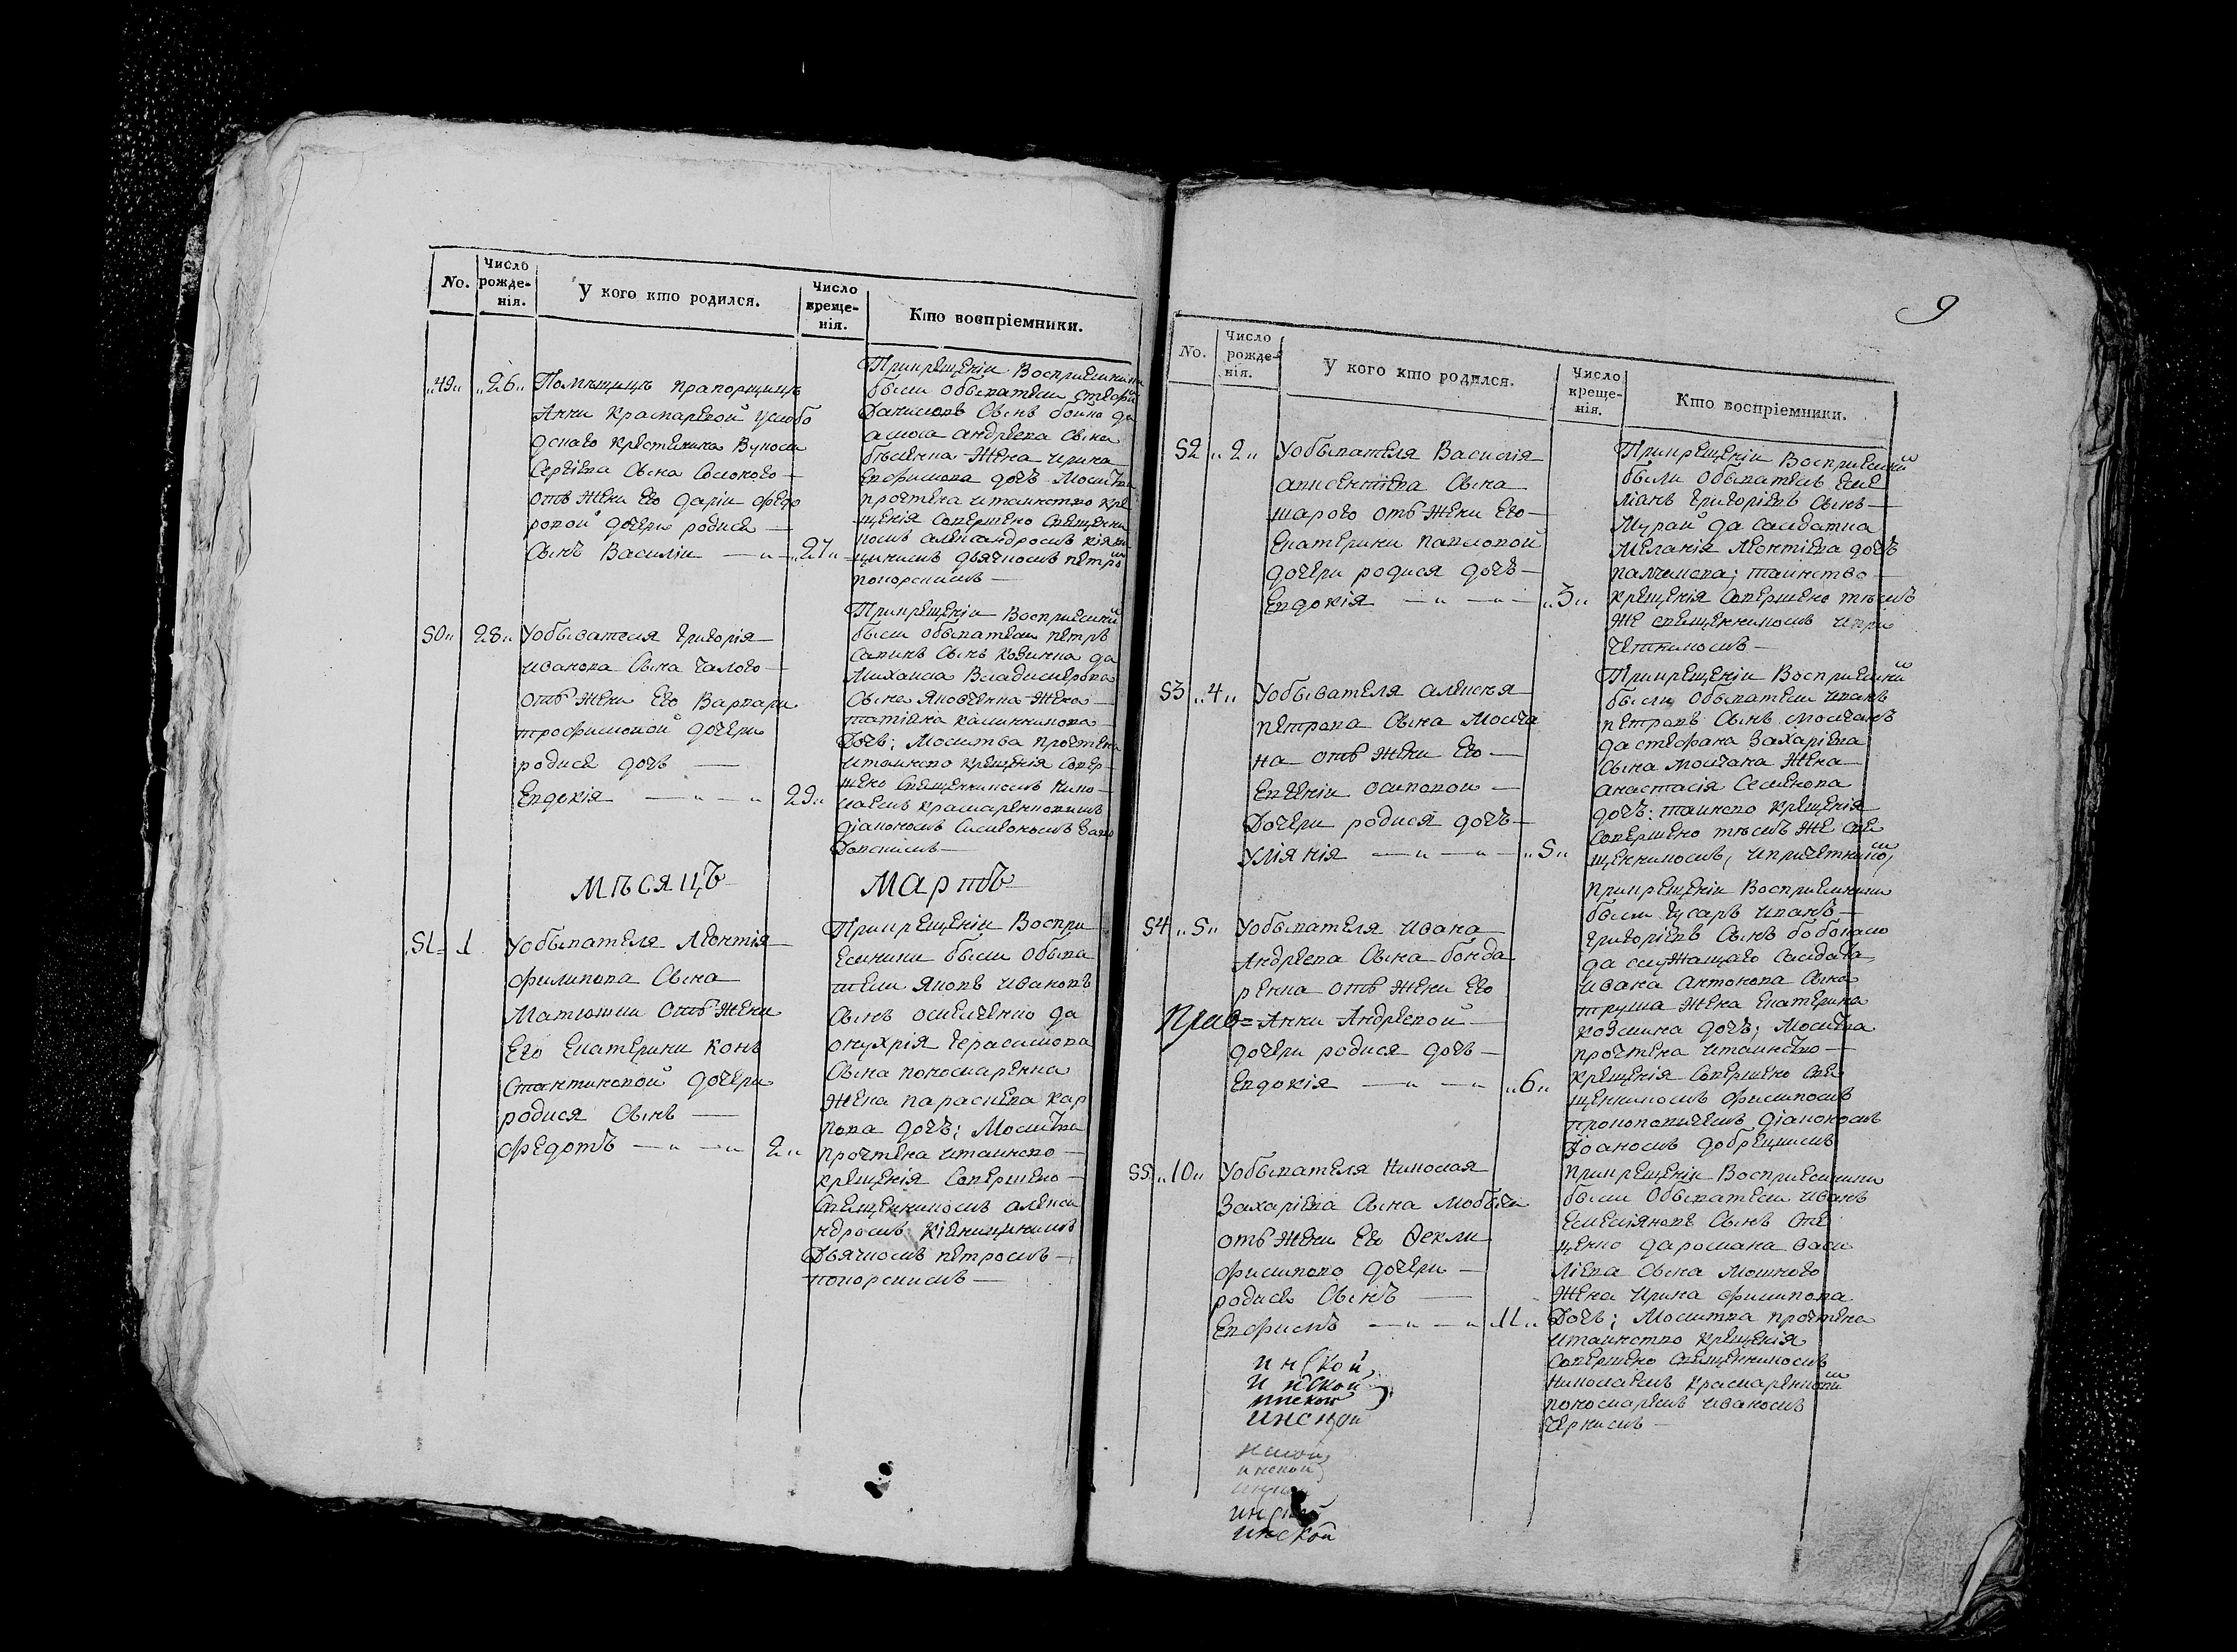 No.
Число рожде- нія.
У кого кто родился.
Число креще- нія.
Кто воспріемники.
„49„ „26„ Помѣщицѣ прапорщицѣ
Анни Крамаревой услобо
дского крестянина Вуколи
Сергіева Сына Солокого
отъ жени Его Даріи Федо
ровой дочери родися
Сынъ Василіи „27„
При крещеніи Восприемники
были обыватели стефан
Даниловъ Сынъ бойко да
андреева Сына
жена ирина
Евфимова дочь молитва
прочтена итаинство кре
щенія совершено священни
комъ александромъ
дьячкомъ петро
50„ 28„ У обывателя Григорія
иванова Сына Чалого
отъ жени Его Варвари
трофимовой дочери
родися дочь
Евдокія 29„
При крещеніи Восприемники
были обыватели петръ
Савинъ Сынъ да
Михаила Владимерова
Сына Яковенка жена
татіяна калинникова
Дочь; Молитва прочтена
итаинство крещенія совер
шено священникомъ Нико
лаемъ крамаренковимъ
діаконом
МѢСЯЦЪ МАРТЪ
51 1 У обывателя Леонтія
филипова Сына
Матюшки отъ жени
Его Екатерини кон
стантиновой дочери
родися Сынъ
Федотъ 2„
При крещеніи Воспри
емники были обыва
тели Яковъ ивановъ
Сынъ омелченко да
онуфрія герасимова
Сына пономаренка
жена параскева кар
пова дочь; Молитва
прочтена итаинство
крещенія совершено
Священникомъ алекса
ндромъ
Дьячкомъ петромъ
9
No.
Число рожде- нія.
У кого кто родился.
Число креще- нія.
Кто воспріемники.
52 „2„ У обывателя Василія
авксентіева Сына
шарого отъ жени Его
Екатерини павловой
дочери родися дочь
Евдокія „3„
При крещеніи Восприемники
были обыватель Еме
ліанъ григоріевъ Сынъ
Мурай да салдатка
Меланія Леонтіева дочь
таинство
крещенія совершено тѣмъ
же священникомъ ипри
четникомъ
53 „4„ У обывателя алексія
петрова Сына Молча
на отъ жени Его
Евгеніи осиповой
Дочери родися дочь
Уліянія „5„
При крещеніи Восприемники
были обыватели иванъ
петровъ Сынъ молчанъ
да стефана захаріева
Сына молчана жена
анастасія Семенова
дочь: таинство крещенія
совершено тѣмъ же свя
щенникомъ, ипричетникомъ,
54 „5„ У обывателя ивана
Андреева Сына бонда
ренка отъ жени Его
Анни Андреевой
дочери родися дочь
Евдокія „6„
При крещеніи Восприемники
были гусаръ иванъ
григоріевъ Сынъ
да служащаго салдата
ивана антонова Сына
труша жена Екатерина
козмина дочь; Молитва
прочтена итаинство
крещенія совершено свя
щенникомъ филипомъ
прокоповичемъ діакономъ
Іоаномъ добрецкимъ
55 „10„ У обывателя Николая
Захаріева Сына
отъ жени Его Ѳекли
филипово дочери
родися Сынъ
Евфимъ „11„
При крещеніи Восприемники
были обыватели иванъ
Емеліяновъ Сынъ
да романа васи
ліева Сына Мошного
жена ирина филипова
Дочь; Молитва прочтена
итаинство крещенія
совершено священникомъ
Николаемъ крамаренковим
пономаремъ иваномъ
чернимъ
инской
инской
инской
инской
инской
инской